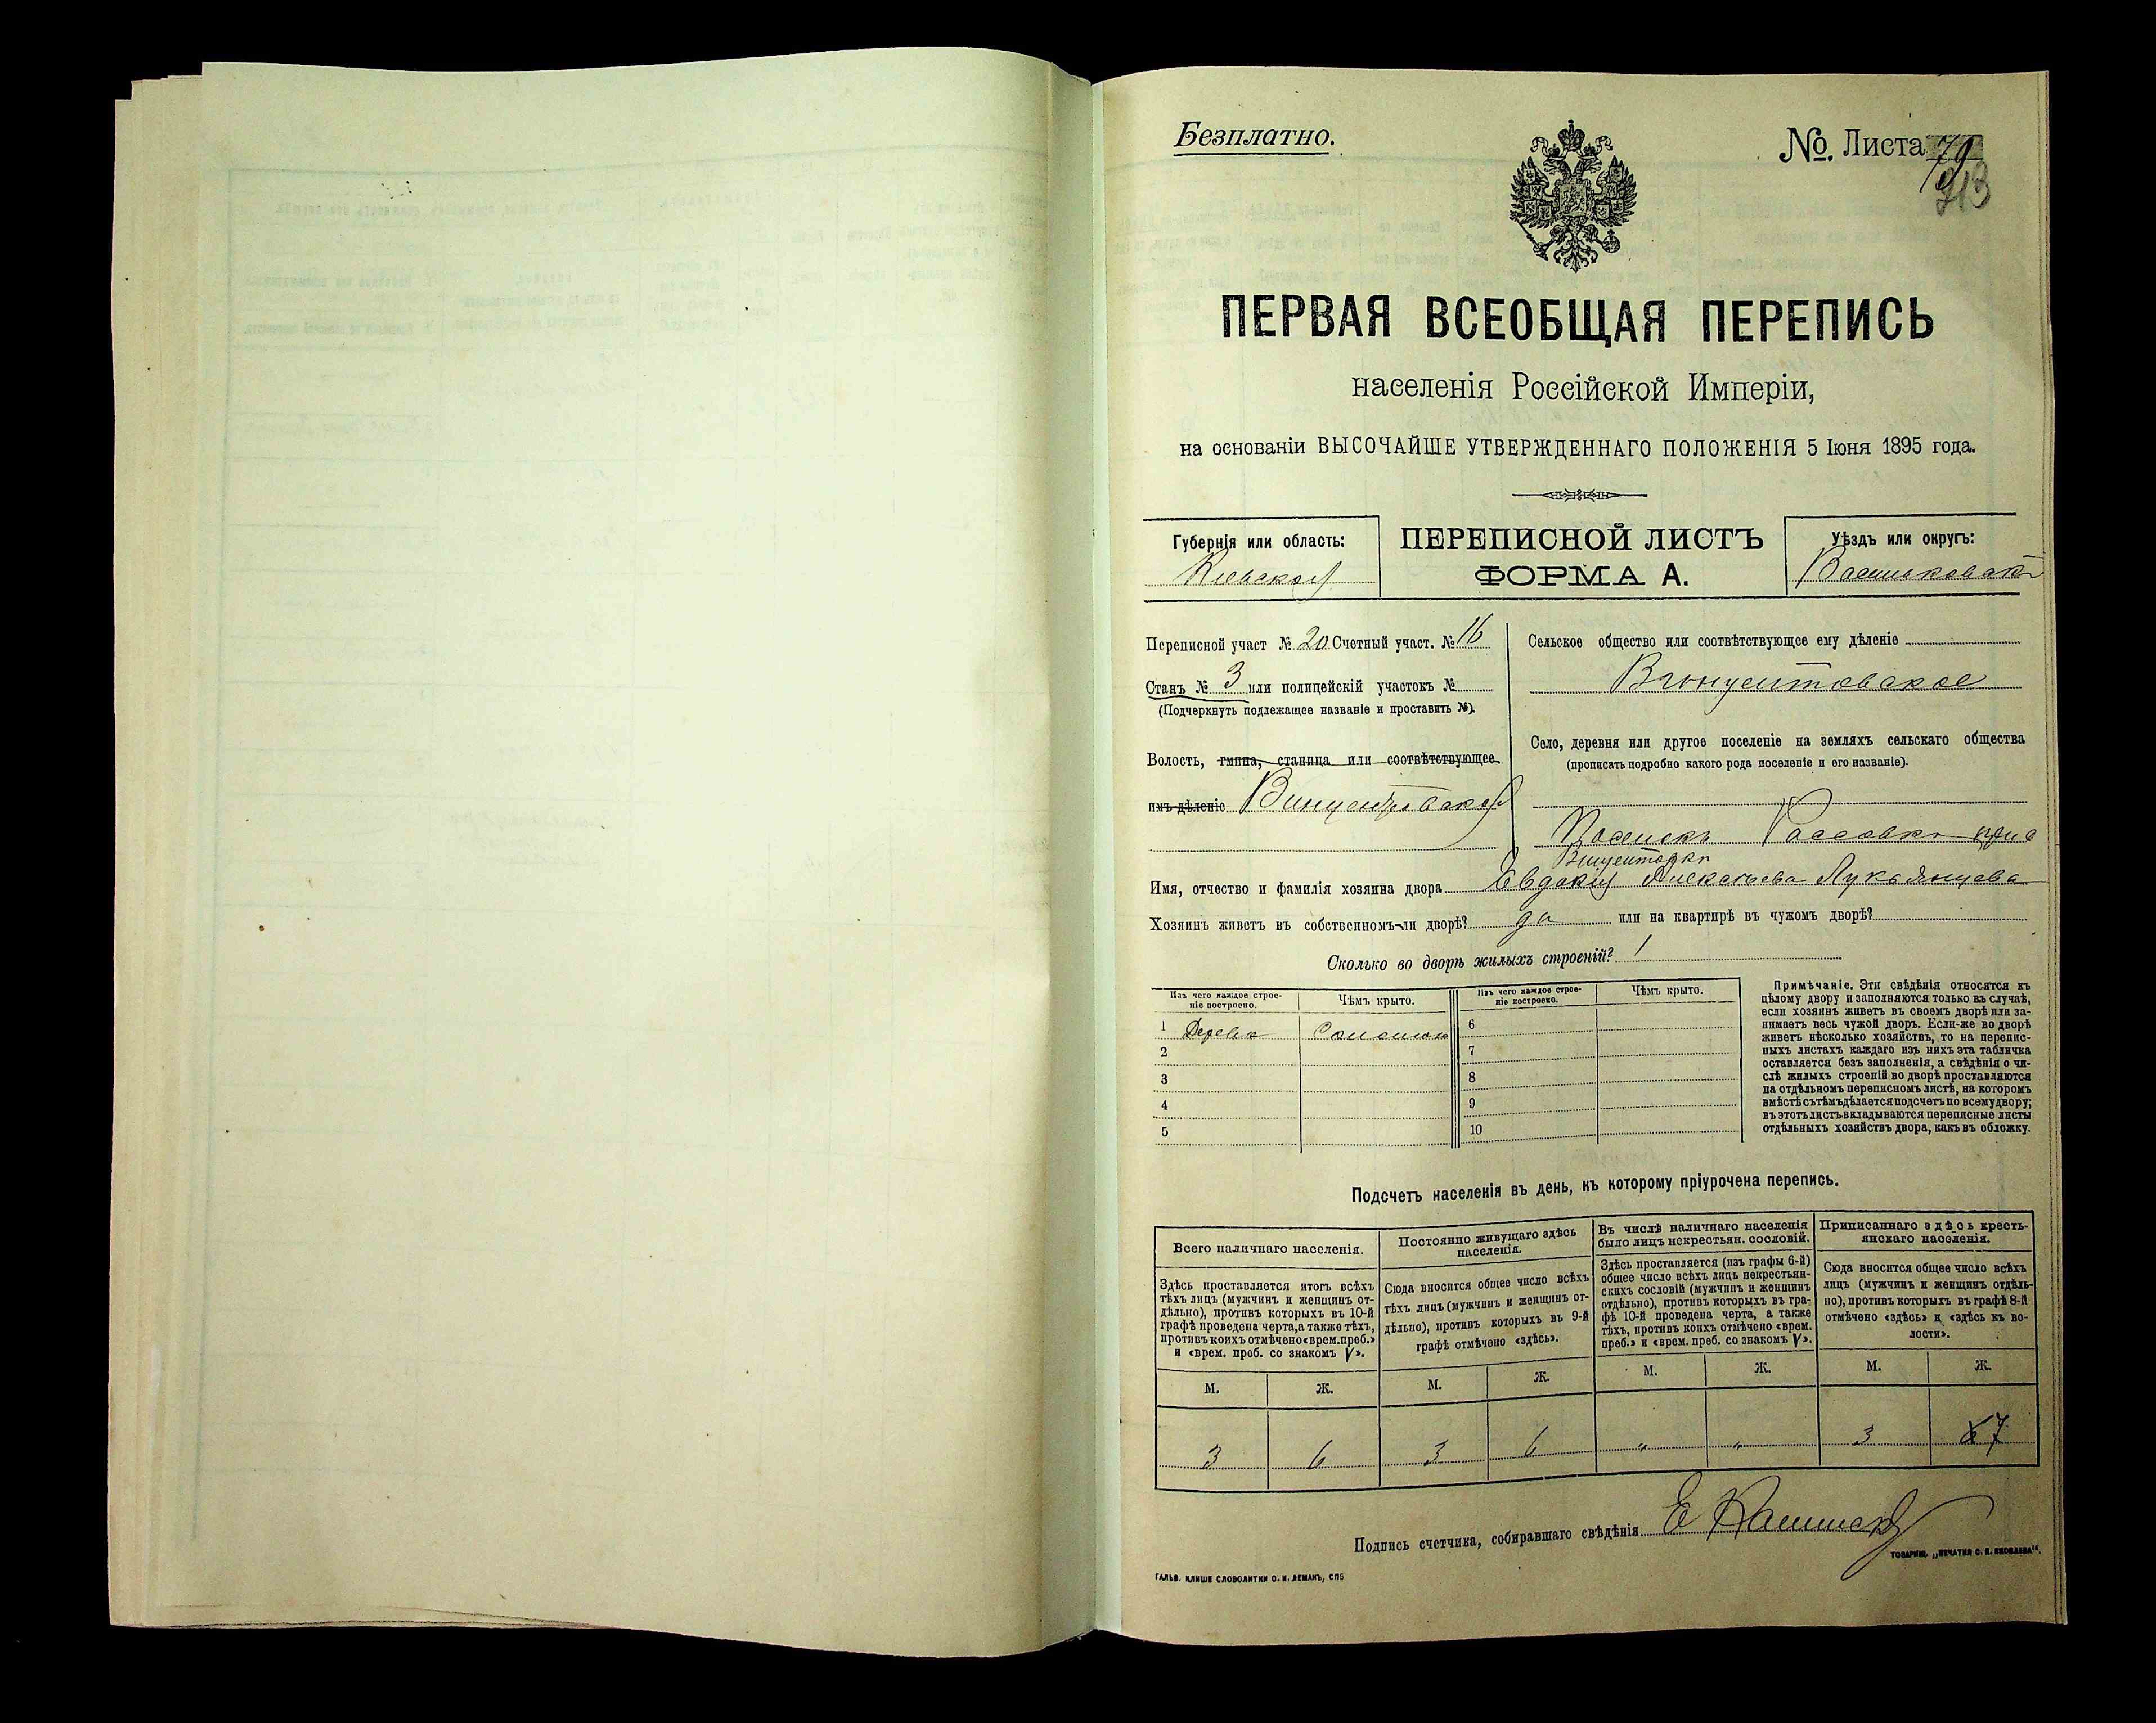 Безплатно.
№. Листа 79
213
ПЕРВАЯ ВСЕОБЩАЯ ПЕРЕПИСЬ
населенія Россійской Имперіи,
на основаніи ВЫСОЧАЙШЕ УТВЕРЖДЕННАГО ПОЛОЖЕНІЯ 5 Іюня 1895 года.
Губернія или область:
Кіевская
ПЕРЕПИСНОЙ ЛИСТЪ
ФОРМА А.
Уѣздъ или округъ:
Васильковскі
Переписной участ № 20 Счетный участ. № 16
Станъ № 3 или полицейскій участокъ №
(Подчеркнуть подлежащее названіе и проставить №).
Волость, гмина, станица или соотвѣтствующее
имъ дѣленіе Винцентовская
Сельское общество или соотвѣтствующее ему дѣленіе
Винцентовское
Село, деревня или другое поселеніе на земляхъ сельскаго общества
(прописать подробно какого рода поселеніе и его названіе).
Поселекъ Рассавка при с
Винцентовки
Имя, отчество и фамилія хозяина двора Евдокія Алексѣева Лукьянцева
Хозяинъ живетъ въ собственномъ-ли дворѣ? да или на квартирѣ въ чужомъ дворѣ?
Сколько во дворѣ жилыхъ строеній? 1
Изъ чего каждое строе-
ніе построено.
Чѣмъ крыто.
Изъ чего каждое строе-
ніе построено.
Чѣмъ крыто.
1 Дерева Соломой
2
3
4
5
6
7
8
9
10
Примѣчаніе. Эти свѣдѣнія относятся къ
цѣлому двору и заполняются только въ случаѣ,
если хозяинъ живетъ въ своемъ дворѣ или за-
нимаетъ весь чужой дворъ. Если-же во дворѣ
живетъ нѣсколько хозяйствъ, то на перепис-
ныхъ листахъ каждаго изъ нихъ эта табличка
оставляется безъ заполненія, а свѣдѣнія о чи-
слѣ жилыхъ строеній во дворѣ проставляются
на отдѣльномъ переписномъ листѣ, на которомъ
вмѣстѣ съ тѣмъ дѣлается подсчетъ по всему двору;
въ этотъ листъ вкладываются переписные листы
отдѣльныхъ хозяйствъ двора, какъ въ обложку.
Подсчетъ населенія въ день, къ которому пріурочена перепись.
Всего наличнаго населенія.
Здѣсь проставляется итогъ всѣхъ
тѣхъ лицъ (мужчинъ и женщинъ от-
дѣльно), противъ которыхъ въ 10-й
графѣ проведена черта, а также тѣхъ,
противъ коихъ отмѣчено «врем. преб.»
и «врем. преб. со знакомъ V».
Постоянно живущаго здѣсь
населенія.
Сюда вносится общее число всѣхъ
тѣхъ лицъ (мужчинъ и женщинъ от-
дѣльно), противъ которыхъ въ 9-й
графѣ отмѣчено «здѣсь».
Въ числѣ наличнаго населенія
было лицъ некрестьян. сословій.
Здѣсь проставляется (изъ графы 6-й)
общее число всѣхъ лицъ некрестьян-
скихъ сословій (мужчинъ и женщинъ
отдѣльно), противъ которыхъ въ гра-
фѣ 10-й проведена черта, а также
тѣхъ, противъ коихъ отмѣчено «врем.
преб.» и «врем. преб. со знакомъ V».
Приписаннаго здѣсь кресть-
янскаго населенія.
Сюда вносится общее число всѣхъ
лицъ (мужчинъ и женщинъ отдѣль-
но), противъ которыхъ въ графѣ 8-й
отмѣчено «здѣсь» и «здѣсь къ во-
лости».
М. Ж. М. Ж. М. Ж. М. Ж.
3 6 3 6 " " 3 7
Подпись счетчика, собиравшаго свѣдѣнія Е
ТОВАРИЩ. „ПЕЧАТНЯ С. П. ЯКОВЛЕВА".
ГАЛЬВ. КЛИШЕ СЛОВОЛИТНИ О. И. ЛЕМАНЪ, СПБ